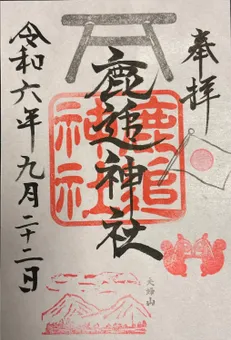 奉拝
鹿追神社
鹿追
神社
令和六年九月二十二日